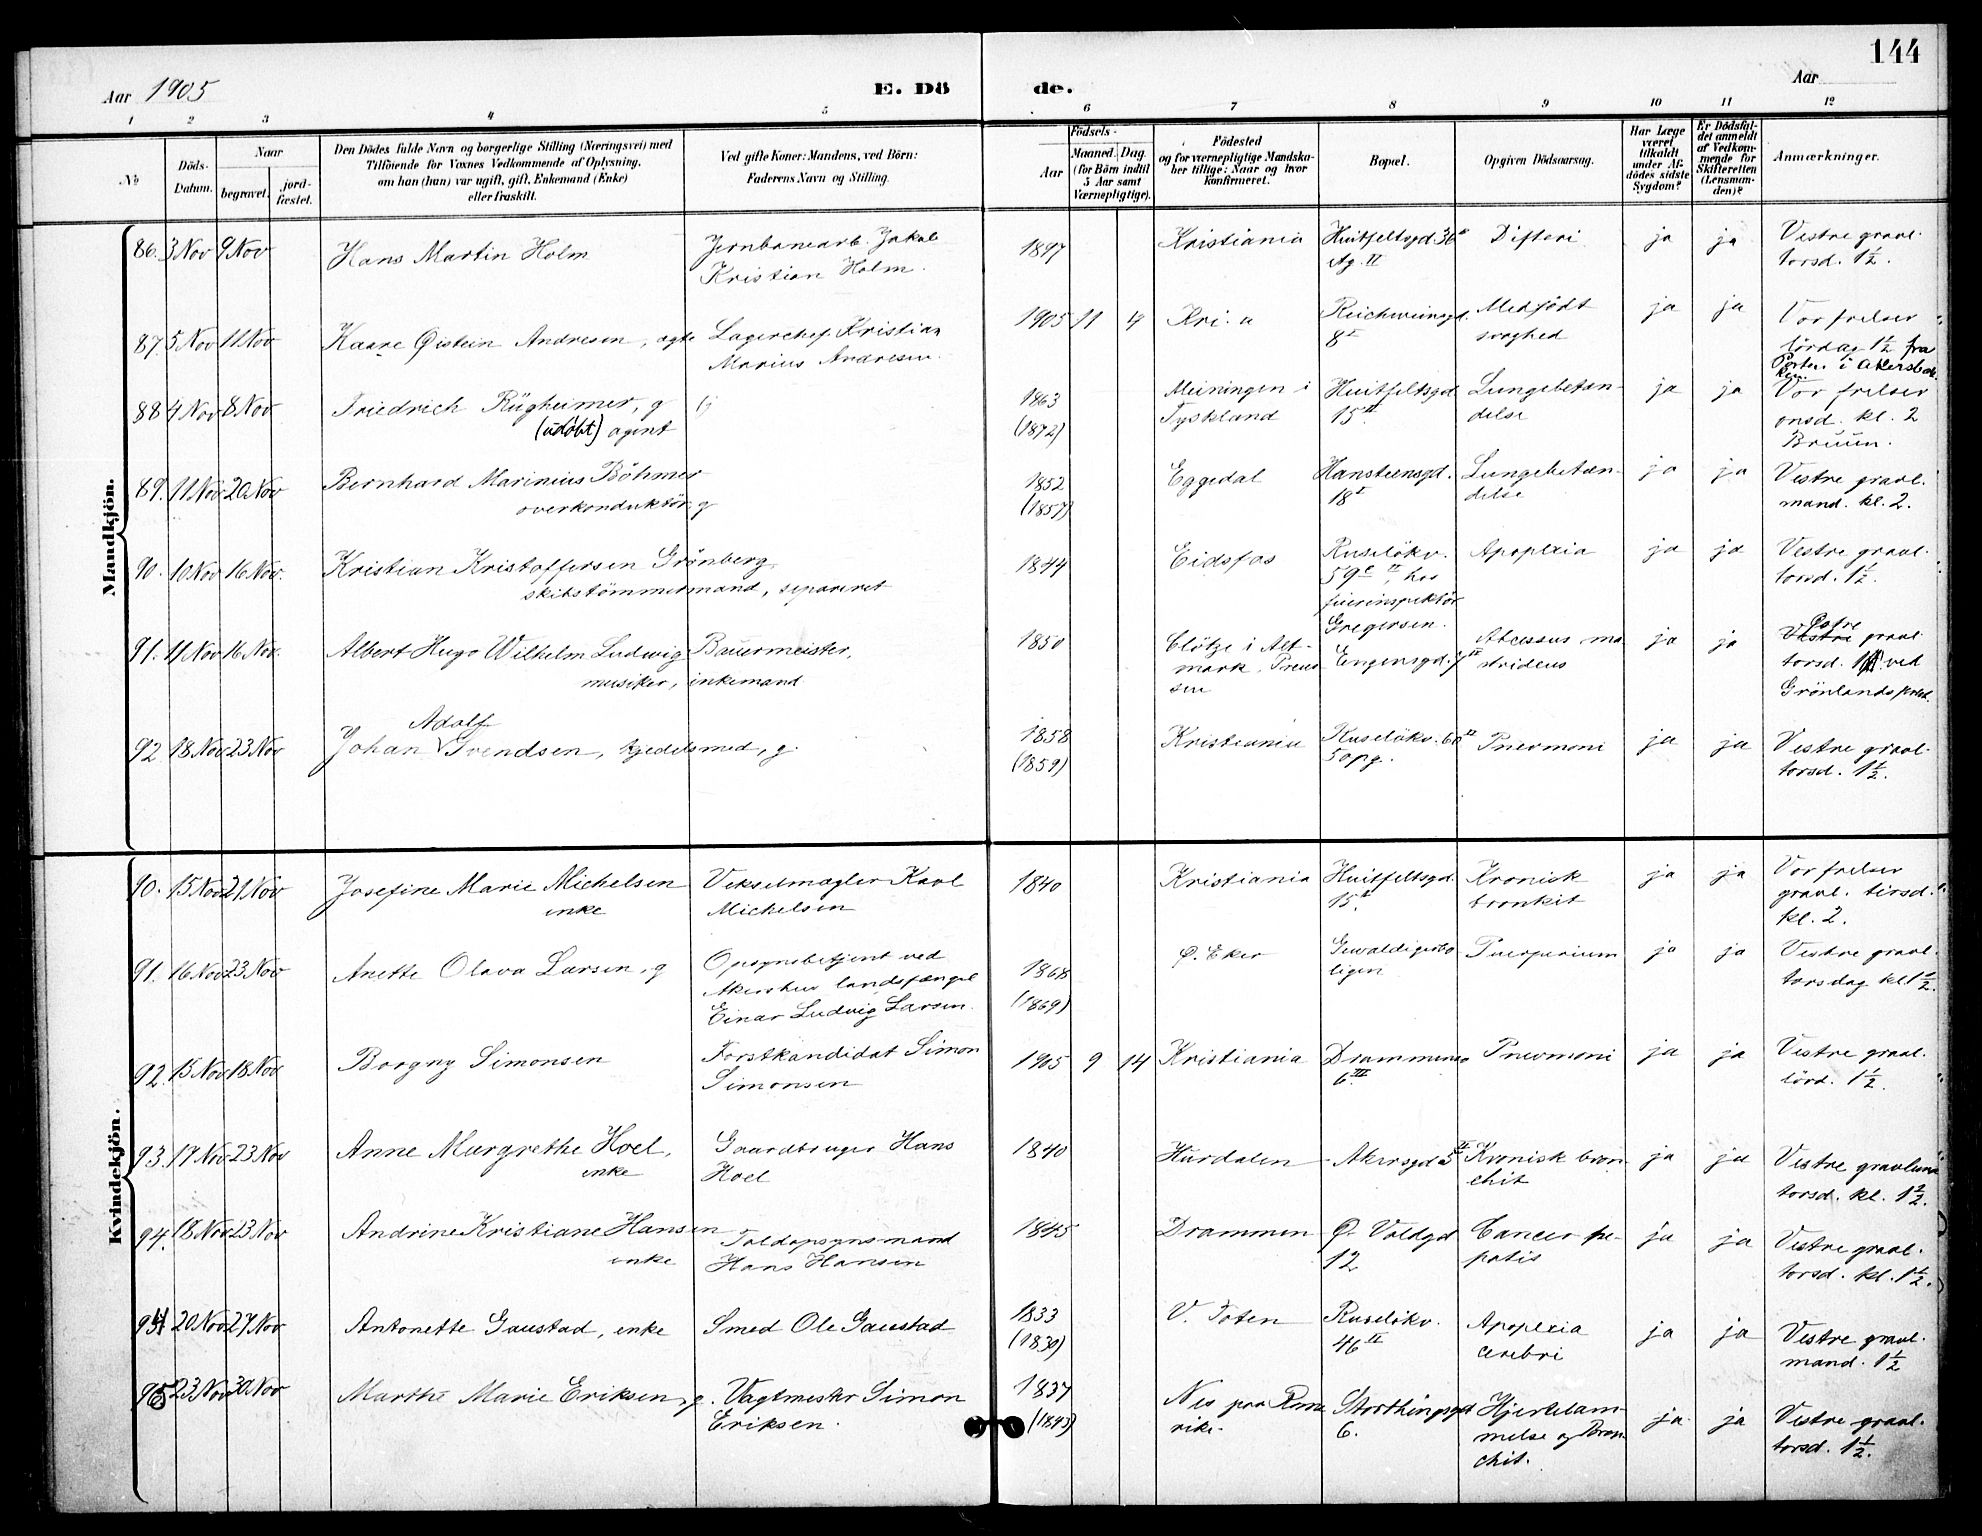 144
Aar 1905
E. Dö de.
Aar
1 2 3 4 5 6 7 8 9 10 11 12
No
Döds-
Datum.
Naar
begravet.
jord-
fæstet.
Den Dödes fulde Navn og borgerlige Stilling (Næringsvei) med
Tilföiende for Voxnes Vedkommende af Oplysning,
om han (hun) var ugift, gift, Enkemand (Enke)
eller fraskilt.
Ved gifte Koner: Mandens, ved Börn:
Faderens Navn og Stilling.
Födsels-
Aar
Maaned. Dag.
(for Börn indtil
5 Aar samt
Værnepligtige).
Födested
og for værnepligtige Mandska-
ber tillige: Naar og hvor
konfirmeret.
Bopæl.
Opgiven Dödsaarsag.
Har Læge
været
tilkaldt
under Af-
dödes sidste
Sygdom?
Er Dödsfal-
det anmeldt
af Vedkom-
mende for
Skifteretten
(Lensman-
den)?
Anmærkninger.
Mandkjön.
86. 3 Nov 9 Nov Hans Martin Holm Jernbanearb. Jakob
Kristian Holm.
1897 Kristiania Huitfeltsgd. 36
Difteri ja ja Vestre gravl.
torsd. 1½.
87. 5 Nov 11 Nov Kaare Øistein Andresen, ægte Lagerchef Kristian
Marius Andresen.
1905 11 4 Kri.a Reichweinsgd.
8 I
Medfödt
svaghed
ja ja Vor frelser
lördag 1½ fra
Porten i Akersbak-
ken.
88 4 Nov 8 Nov Friedrich Rügheimer, g
(udöbt) agent
1863
(1872)
Meiningen i
Tyskland
Huitfeltsgd
15 II
Lungebetæn-
delse
ja ja Vor frelser
onsd. kl. 2
Bruun.
89. 11 Nov 20 Nov Bernhard Marinius Böhmer
overkonduktör, g
1852
(1857)
Eggedal Hansteensgd.
18 I
Lungebetæn-
delse
ja ja Vestre gravl.
mand. kl. 2.
90. 10 Nov 16 Nov. Kristian Kristoffersen Grönberg
skibstömmermand, separeret
1844 Eidsfos Ruselökv.
59 c II, hos
fierinspektör
Gregersen.
Apoplexia ja ja Vestre gravl.
torsd. 1½.
91. 11 Nov 16 Nov. Albert Hugo Wilhelm Ludwig Bauermeister,
musiker, enkemand
1850 Clötze i Alt-
mark, Preus
sen
Engensgd. 7 II
Abcessus ma
stoideus
ja ja Östre
Vestre gravl
torsd. ved
Grönlands prest.
92 18 Nov 23 Nov Adolf
Johan Svendsen, kjedelsmed, g.
1858
(1859)
Kristiania Ruselökv. 60 II
5 opg.
Pnevmoni ja ja Vestre gravl.
torsd. 1½.
Kvindekjön.
90. 15 Nov 21 Nov Josefine Marie Michelsen
enke
Vekselmægler Karl
Michelsen
1840 Kristiania Huitfeltsgd.
15 I
Kronisk
bronkit
ja ja Vor frelser
gravl. tirsd.
kl. 2.
91. 16 Nov 23 Nov Anette Olava Larsen, g Opsynsbetjent ved
Akershus landsfængsel
Einar Ludvig Larsen.
1868
(1869)
Ø. Eker Gevaldigerbo
ligen
Puerperium ja ja Vestre gravl.
torsdag kl. 1½.
92. 15 Nov 18 Nov Borgny Simonsen Forstkandidat Simon
Simonsen
1905 9 14 Kristiania Drammensv
6 III
Pnevmoni ja ja Vestre gravl.
lörd. 1½.
93. 17 Nov 23 Nov Anne Margrethe Hoel,
enke
Gaardbruger Hans
Hoel
1840 Hurdalen Akersgd 5 II
Kronisk bron
chit
ja ja Vestre gravlund
torsd. kl. 1½.
94. 18 Nov 23 Nov Andrine Kristiane Hansen
enke
Toldopsynsmand
Hans Hansen
1845 Drammen Ø. Voldgd
12
Cancer he-
patis
ja ja Vestre gravl.
torsd. kl. 1½.
94 20 Nov 27 Nov Antonette Gaustad, enke Smed Ole Gaustad
1833
(1830)
V. Toten Ruselökv.
46 II
Apoplexia
cerebri
ja ja Vestre gravl.
mand. 1½
95 23 Nov 30 Nov Marthe Marie Eriksen, g. Vagtmester Simon
Eriksen.
1837
(1843)
Nes paa Rome
rike.
Storthingsgd
6.
Hjertelam-
melse og Bron
chit.
ja ja Vestre gravl.
torsd. 1½.